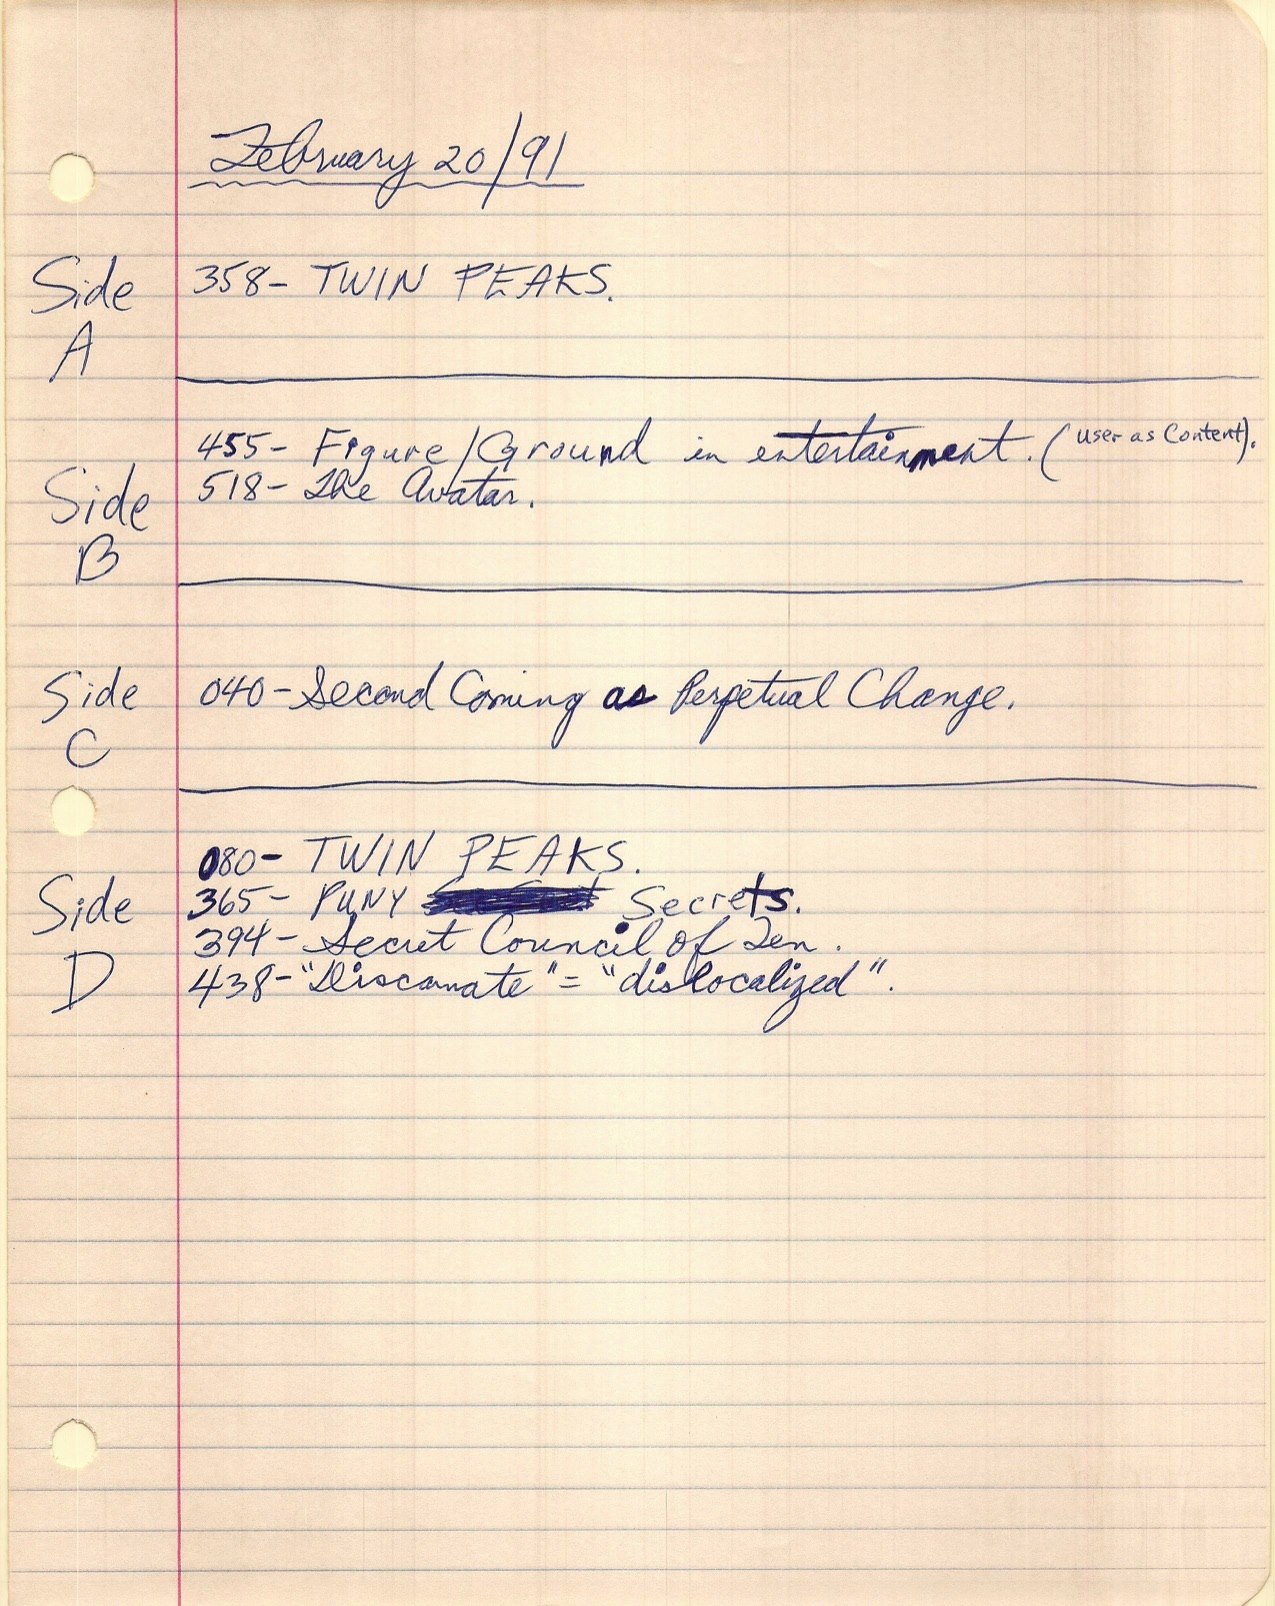 February 20/91
Side A
358- TWIN PEAKS.
Side B
455- Figure/Ground in entertainment. (User as Content).
518- The Avatar.
Side C
040- Second Coming as Perpetual Change.
Side D
080- TWIN PEAKS.
365- PUNY Secrets.
394- Secret Council of Ten.
438- "Discarnate" = "dislocalized".